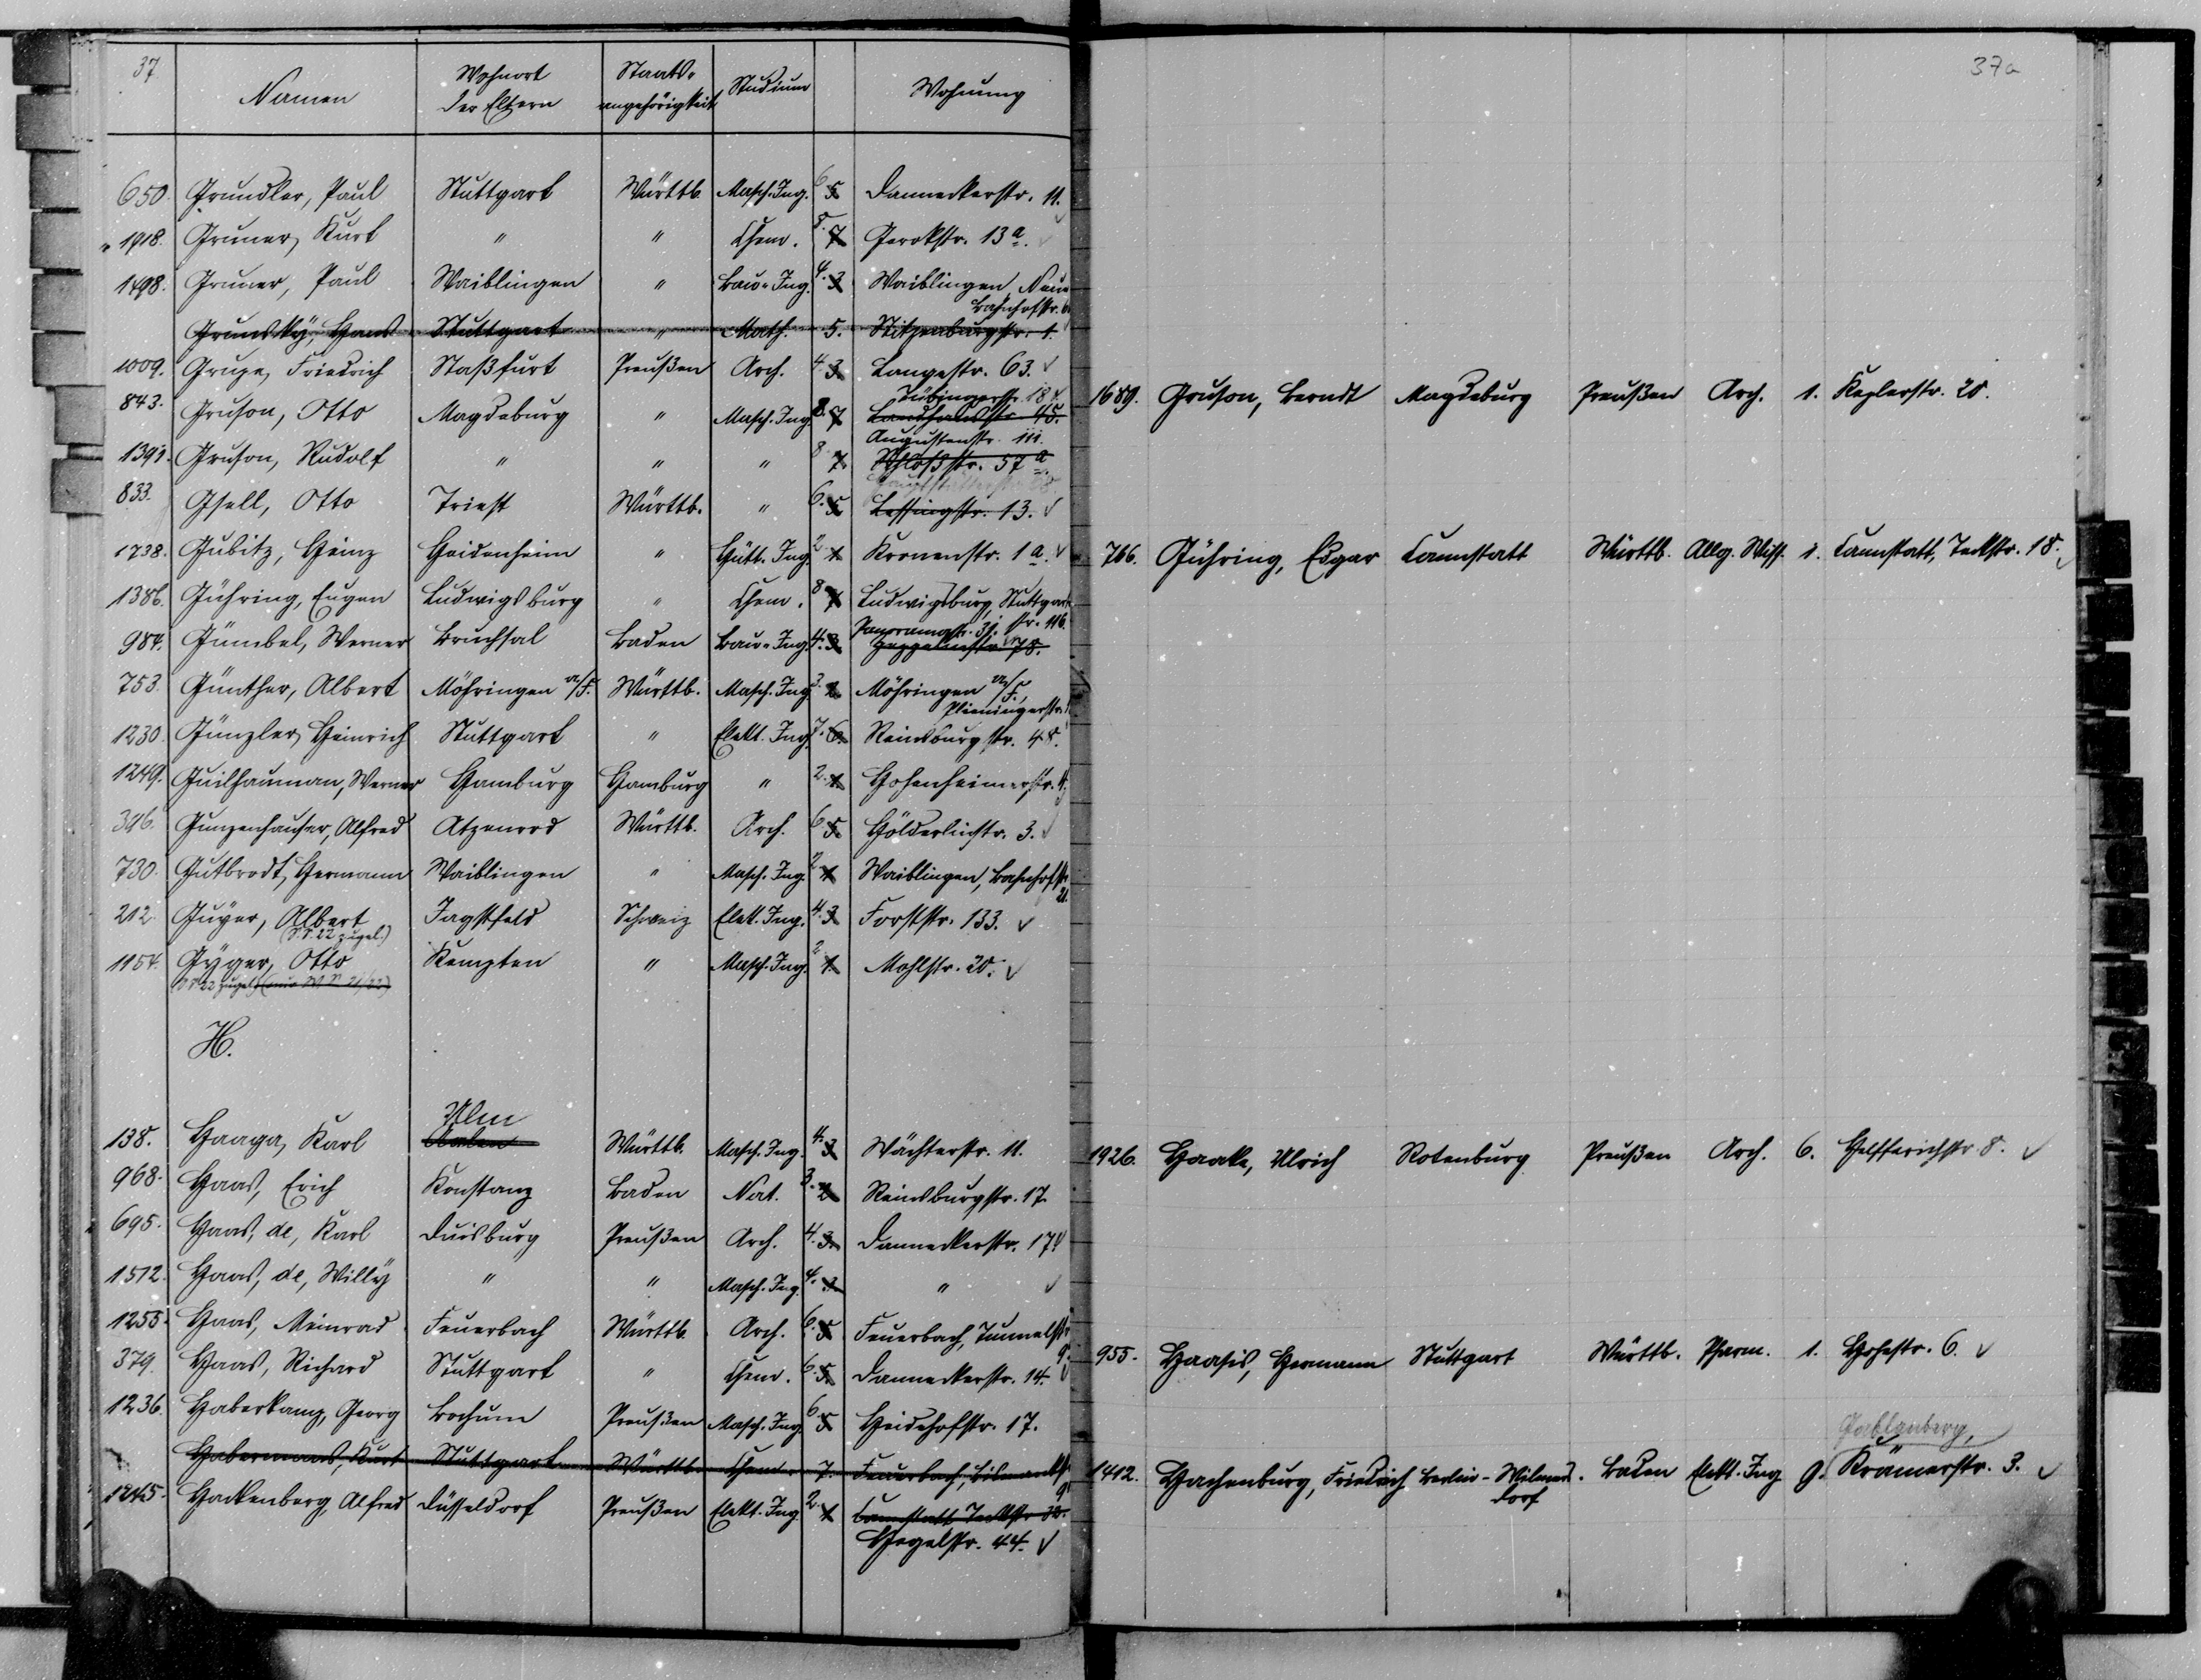 37
Namen Wohnort der Eltern Staats-angehörigkeit Studium Wohnung
650. Grundler, Paul Stuttgart Württb. Masch. Ing. 6 5 Danneckerstr. 11.
1918. Gruner, Kurt " " Chem. 8. 7 Gerokstr. 13 a.
1498. Gruner, Paul Waiblingen " Bau-Ing. 4. 3 Waiblingen, Neue
Bahnhofstr.
Grunsky, Hans Stuttgart " Math. 5. Stitzenburgstr. 1.
1009. Grupe, Friedrich Staßfurt Preußen Arch. 4. 3. Langestr. 63.
Tübingerstr. 18
843. Gruson, Otto Magdeburg " Masch. Ing. 8. 7
Augustenstr. 111.
1391. Gruson, Rudolf " " " 8 7. Schloßstr. 57 a.
833. Gsell, Otto Triest Württb. " 6. 5. Lessingstr. 13.
1738. Gubitz, Heinz Heidenheim " Hütt. Ing. 2. 1. Kronenstr. 1 a.
1386. Gühring, Eugen Ludwigsburg " Chem. 8 7 Ludwigsburg, Stuttgart
str. 116.
Panoramastr. 31.
984. Gümbel, Werner Bruchsal Baden Bau-Ing. 4. 3. Zeppelinstr. 78.
753. Günther, Albert Möhringen a/F. Württb. Masch. Ing. 3. 2. Möhringen a/F.,
Plieningerstr.
1230. Günzler, Heinrich Stuttgart " Elekt. Ing. 7. 6. Reinsburgstr. 48.
1249. Guilhauman, Werner Hamburg Hamburg " 2. 1. Hohenheimerstr. 4.
396. Gunzenhauser, Alfred Atzenrod Württb. Arch. 6 5. Hölderlinstr. 3.
730. Gutbrodt, Hermann Waiblingen " Masch. Ing. 2. 1 Waiblingen, Bahnhofstr.
21.
212. Guÿer, Albert Jagstfeld Schweiz Elekt. Ing. 4. 3 Forststr. 133.
(S.S. 22 zugel.)
1154. Gyger, Otto Kempten " Masch. Ing. 2 1. Mohlstr. 20.
S.S. 22 zugel. (nur W.S. 21/22)
H.
Ulm
138. Haaga, Karl Aalen Württb. Masch. Ing. 4. 3 Wächterstr. 11.
968. Haas, Erich Konstanz Baden Nat. 3. 2 Reinsburgstr. 17.
695. Haas, de, Karl Duisburg Preußen Arch. 4. 3. Danneckerstr. 17
1512. Haas, de, Willÿ " " Masch. Ing. 4. "
1255. Haas, Meinrad Feuerbach Württb. Arch. 6. 5 Feuerbach, Tunnelstr.
9.
379. Haas, Richard Stuttgart " Chem. 6. 5. Danneckerstr. 14.
1236. Haberkamp, Georg Bochum Preußen Masch. Ing. 6. 5 Heidehofstr. 17.
Habermaas, Kurt Stuttgart Württb. Chem. 7. Feuerbach, Bismarckstr.
9
1245. Hackenberg, Alfred Düsseldorf Preußen Elekt. Ing. 2. 1 Cannstatt Teckstr.
Hegelstr. 44.
37a
1689. Gruson, Berndt Magdeburg Preußen Arch. 1. Keplerstr. 20.
766. Gühring, Edgar Cannstatt Württb. Allg. Wiss. 1. Cannstatt, Teckstr. 18.
1926. Haake, Ulrich Rotenburg Preußen Arch. 6. Helfferichstr. 8.
955. Haasis, Hermann Stuttgart Württb. Pharm. 1. Hohestr. 6.
Gablenberg,
1412. Hachenburg, Friedrich Berlin-Wilmers- Baden Elekt. Ing. 9. Krämerstr. 3.
dorf